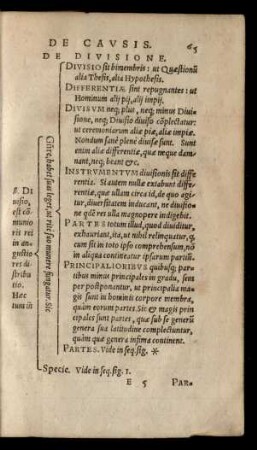 DE CAVSIS. 65
DE DIVISIONE.
DIVISIO sit bimembris: ut Quæstionū
alia Thesis, alia Hypothesis.
DIFFERENTIÆ sint repugnantes: ut
Hominum alij pij, alij impij.
DIVISVM neq; plus, neq; minus Diui-
sione, neq; Diuisio diuiso cōplectatur:
ut ceremoniarum aliæ piæ, aliæ impiæ.
Nondum sanè plenè diuisæ sunt. Sunt
enim aliæ differentiæ, quæ neque dam-
nant, neq; beant &c.
INSTRVMENTVM diuisionis sit diffe-
rentia. Si autem nullæ extabunt differ-
rentiæ, quæ ullam circa id, de quo agi-
tur, diuersitatem inducant, ne diuisio-
ne quidē res ulla magnopere indigebit.
PARTES totum illud, quod diuiditur,
exhauriant, ita, ut nihil relinquetur, q,
cum sit in toto ipso comprehensum, nō
in aliqua contineatur ipsarum partiū.
PRINCIPALIORIBVS quibusq; par-
tibus minus principales in gradu, sunt
per postponantur, ut principalia ma-
gis sunt in hominis corpore membra,
quàm eorum partes. Sic & magis prin
cipales sunt partes, quæ sub se generū
genera sua latitudine complectuntur,
quàm quæ genera infima continent.
PARTES. Vide in seq. fig. *
Specie. Vide in seq. fig. 1.
E 5 PAR-
habet suas leges, ut ritè suo munere fungatur. Sic
Di
uisio,
est cō
munio
ris rei
in an-
gustio
res di
stribu
tio.
Hæc